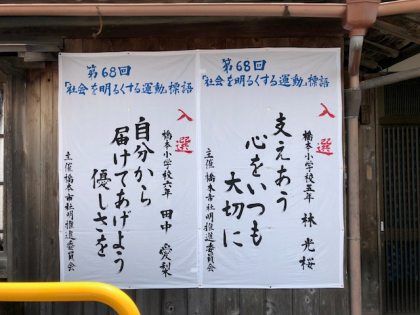 第68回
「社会を明るくする運動」標語
入選
橋本小学校五年 林 光桜
支えあう
心をいつも
大切に
主催 橋本市社明推進委員会
第68回
「社会を明るくする運動」標語
入選
橋本小学校六年 田中 愛梨
自分から
届けてあげよう
優しさを
主催 橋本市社明推進委員会